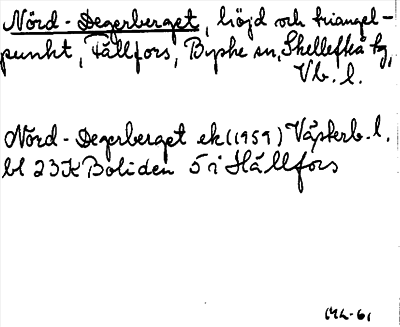 Nörd-Degerberget, höjd och triangel-
punkt, Fällfors, Byske sn, Skellefteå kg,
Vb. l.
Nörd-Degerberget ek (1959) Västerb. l.
bl 23K Boliden 5 i Hällfors
ML-61